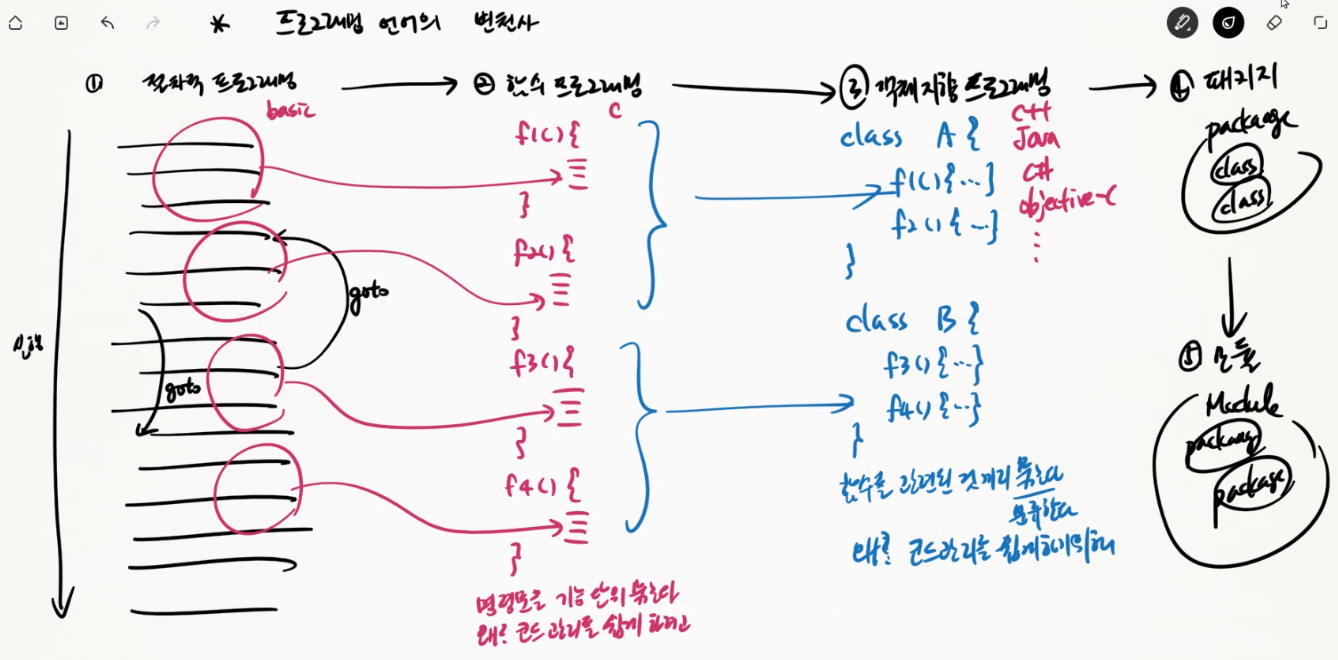 * 프로그래밍 언어의 변천사
① 절차적 프로그래밍
basic
실행
goto
goto
② 함수 프로그래밍
C
f1() {
}
f2() {
}
f3() {
}
f4() {
}
명령문을 기능 단위 묶는다
왜? 코드 관리를 쉽게 하려고
③ 객체지향 프로그래밍
C++
Java
C#
objective-C
⋮
class A {
f1() {...}
f2() {...}
}
class B {
f3() {...}
f4() {...}
}
함수를 관련된 것끼리 묶는다
분류한다
왜? 코드관리를 쉽게하기위해
④ 패키지
package
class
class
⑤ 모듈
Module
package
package